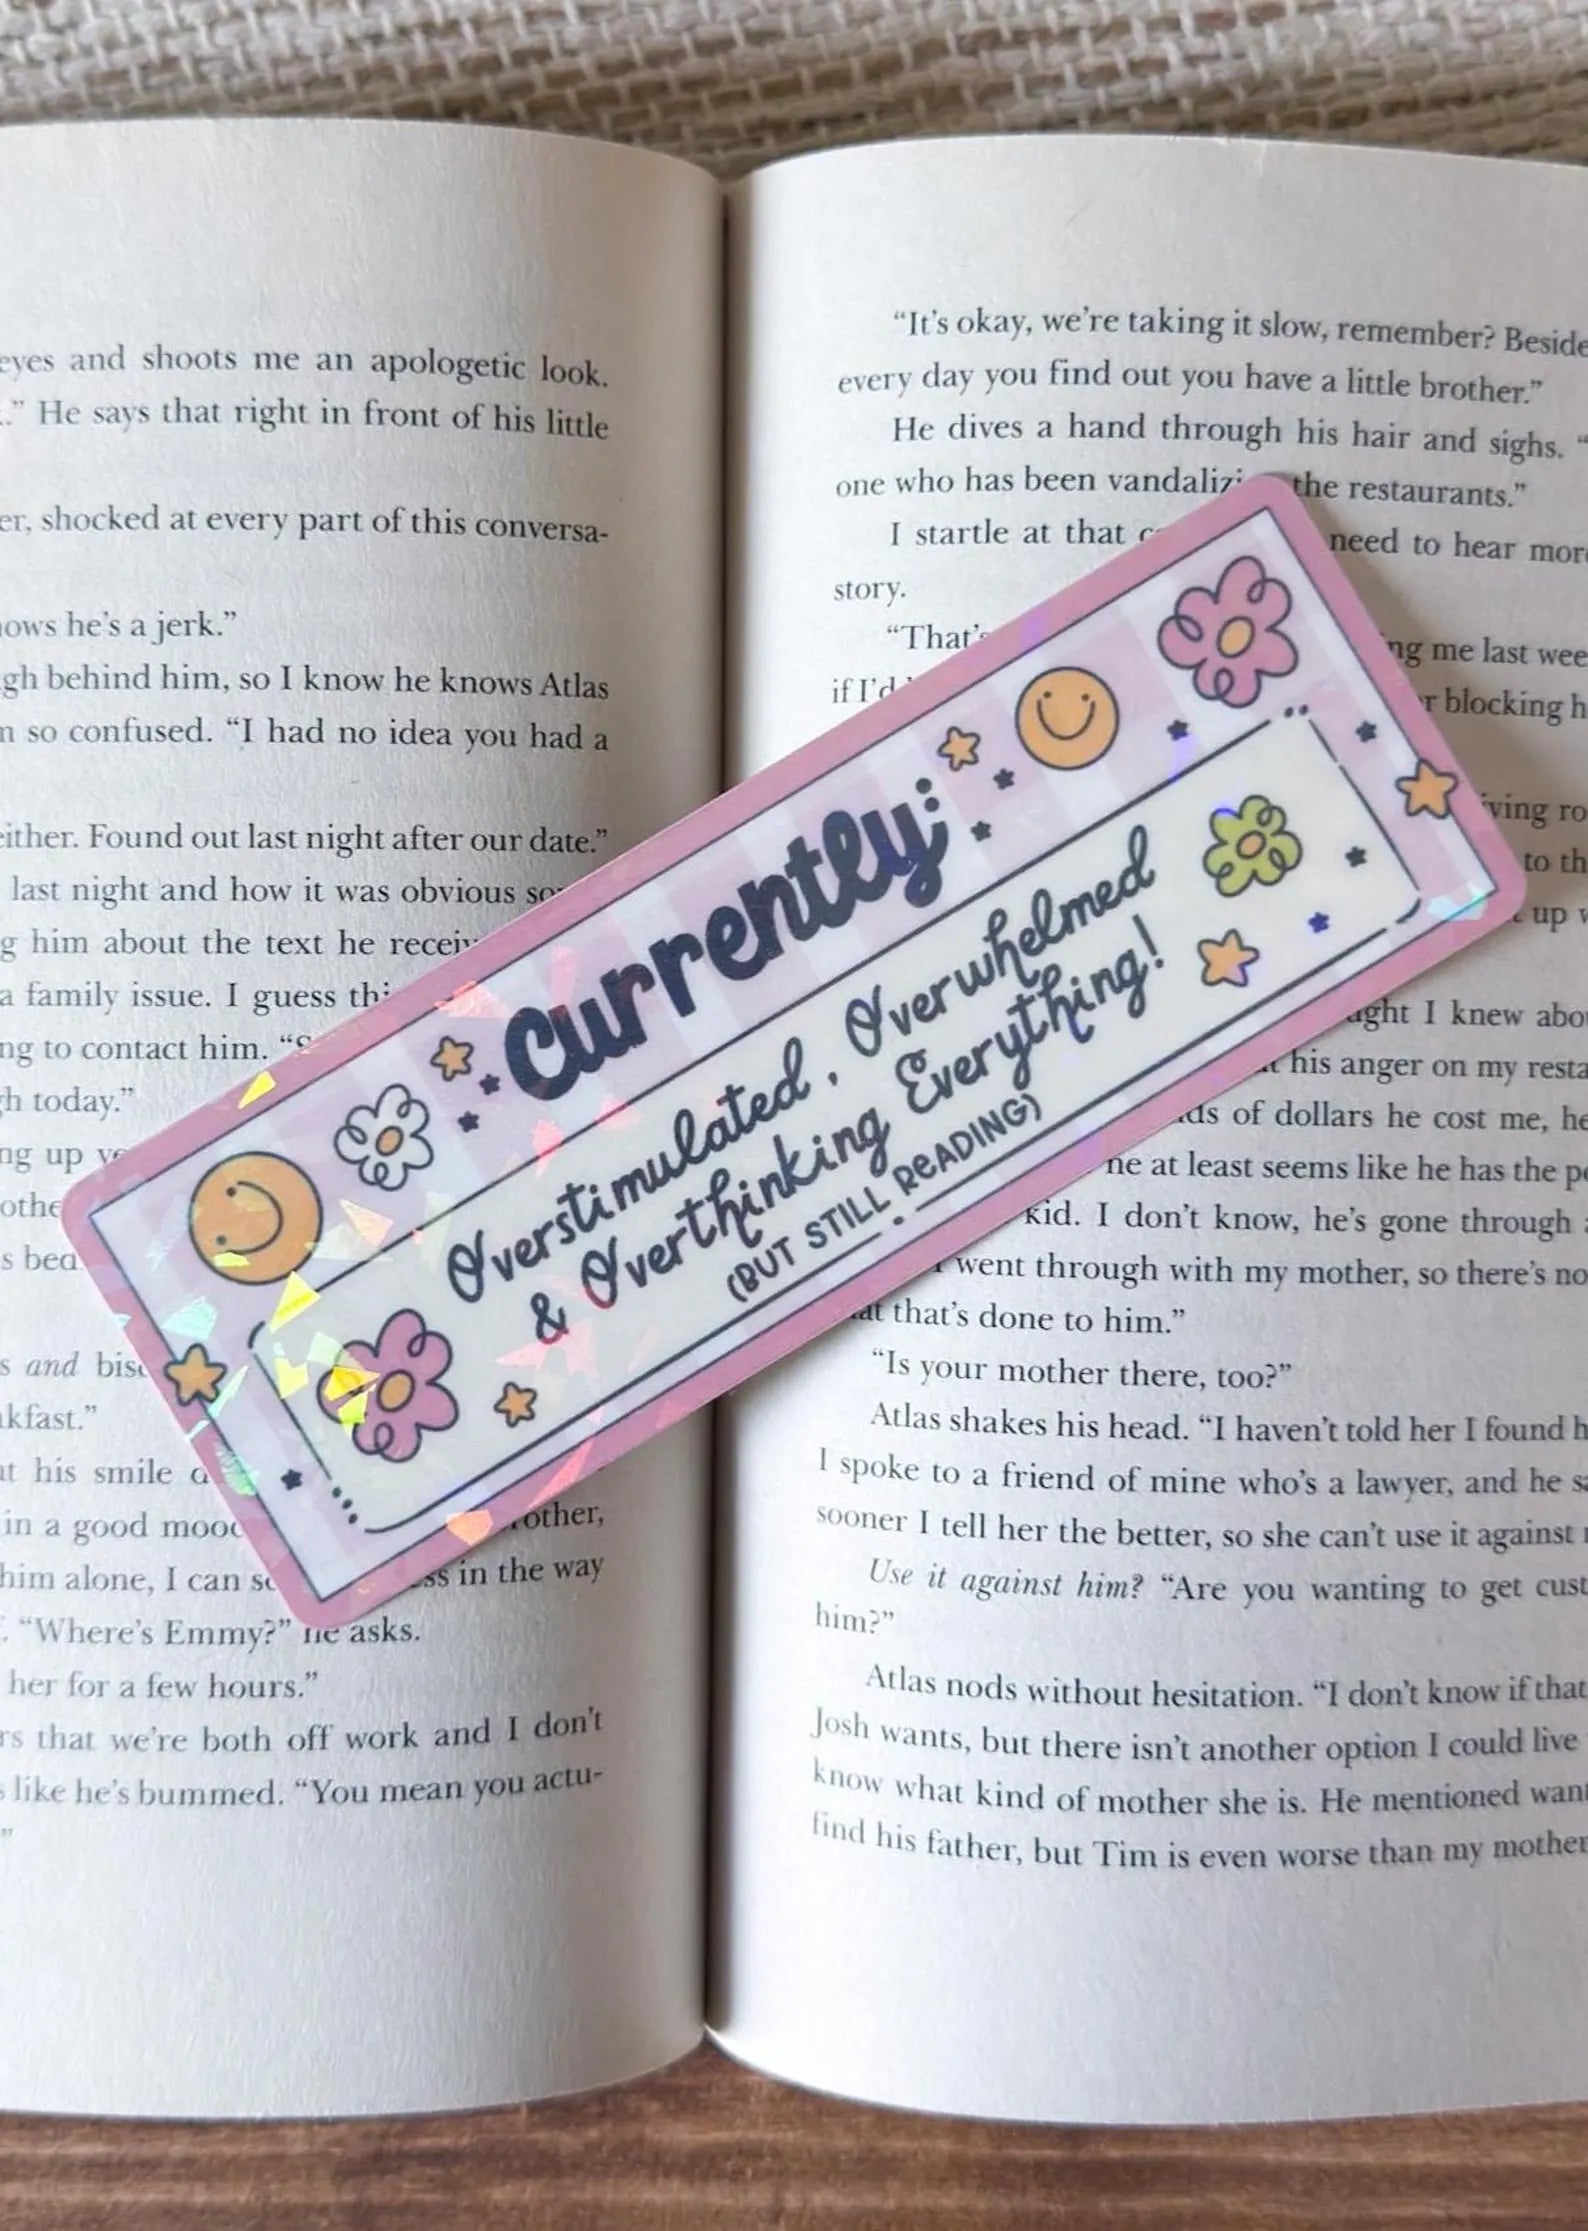 eyes and shoots me an apologetic look.
.” He says that right in front of his little
shocked at every part of this conversa-
he’s a jerk.”
behind him, so I know he knows Atlas
so confused. “I had no idea you had a
Found out last night after our date.”
last night and how it was obvious
him about the text he
a family issue. I guess
to contact him.
today.”
up
and
in a good
his smile
him alone, I can
in the way
“Where’s Emmy?” he asks.
her for a few hours.”
that we’re both off work and I don’t
like he’s bummed. “You mean you actu-
”
“It’s okay, we’re taking it slow, remember?
every day you find out you have a little brother.”
He dives a hand through his hair and sighs. “
one who has been the restaurants.”
I startle at that need to hear
story.
me last
if blocking
to
up
I knew
his anger on my
of dollars he cost me,
at least seems like he has the
kid. I don’t know, he’s gone through
went through with my mother, so there’s
that’s done to him.”
“Is your mother there, too?”
Atlas shakes his head. “I haven’t told her I found
I spoke to a friend of mine who’s a lawyer, and he
sooner I tell her the better, so she can’t use it against
Use it against him? “Are you wanting to get
him?”
Atlas nods without hesitation. “I don’t know if that
Josh wants, but there isn’t another option I could live
know what kind of mother she is. He mentioned
find his father, but Tim is even worse than my mother
Currently:
Overstimulated, Overwhelmed
& Overthinking Everything!
(BUT STILL READING)